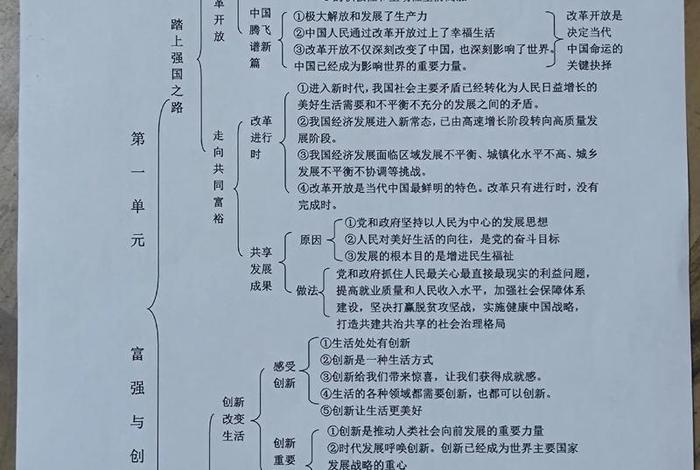 踏上强国之路
革开放
中国腾飞谱新篇
①极大解放和发展了生产力
②中国人民通过改革开放过上了幸福生活
③改革开放不仅深刻改变了中国，也深刻影响了世界。
中国已经成为影响世界的重要力量。
改革开放是
决定当代
中国命运的
关键抉择
走向共同富裕
改革进行时
①进入新时代，我国社会主要矛盾已经转化为人民日益增长的
美好生活需要和不平衡不充分的发展之间的矛盾。
②我国经济发展进入新常态，已由高速增长阶段转向高质量发
展阶段。
③我国经济发展面临区域发展不平衡、城镇化水平不高、城乡
发展不平衡不协调等挑战。
④改革开放是当代中国最鲜明的特色。改革只有进行时，没有
完成时。
共享发展成果
原因
①党和政府坚持以人民为中心的发展思想
②人民对美好生活的向往，是党的奋斗目标
③发展的根本目的是增进民生福祉
做法
党和政府抓住人民最关心最直接最现实的利益问题，
提高就业质量和人民收入水平，加强社会保障体系
建设，坚决打赢脱贫攻坚战，实施健康中国战略，
打造共建共治共享的社会治理格局
第一单元
富强与创
创新改变生活
感受创新
①生活处处有创新
②创新是一种生活方式
③创新给我们带来惊喜，让我们获得成就感。
④生活的各种领域都需要创新，也都可以创新。
⑤创新让生活更美好
创新重要
①创新是推动人类社会向前发展的重要力量
②时代发展呼唤创新。创新已经成为世界主要国家
发展战略的重心